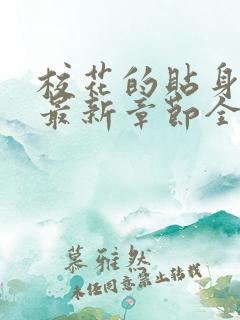 校花的贴身
最新章节全
慕雅然
未经同意禁止转载